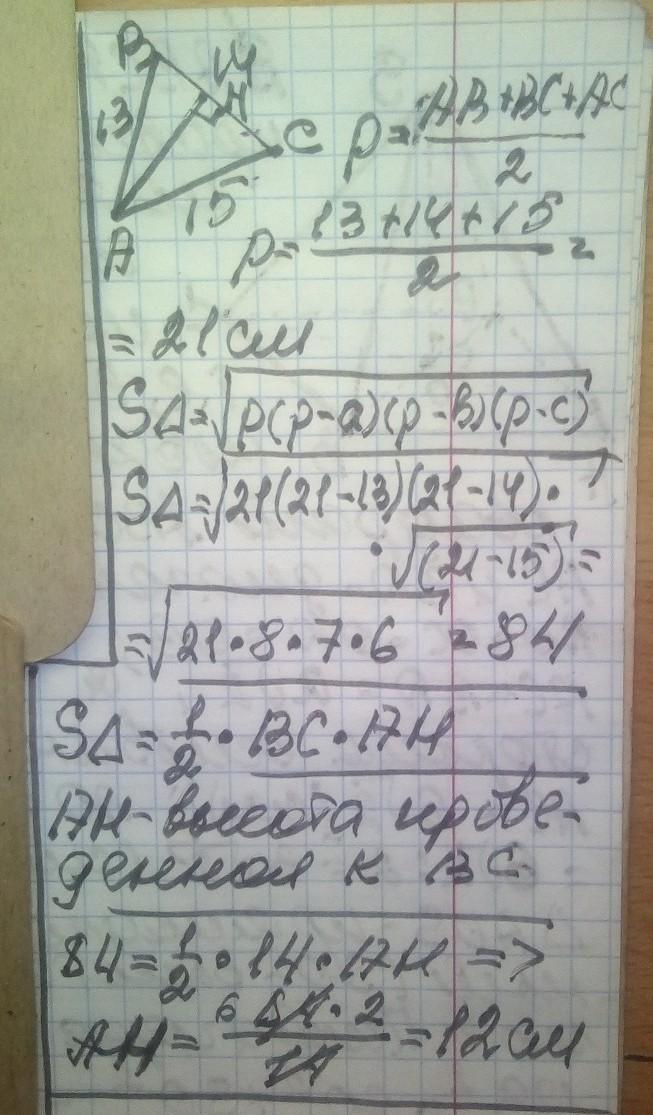 B
14
H
13
C
15
A
p = (AB+BC+AC)/2
p = (13+14+15)/2 =
= 21 см
S△ = √(p(p-a)(p-в)(p-c))
S△ = √21(21-13)(21-14)·
·√(21-15) =
= √(21·8·7·6) = 84
S△ = 1/2 · BC · AH
AH - высота прове-
денная к BC
84 = 1/2 · 14 · AH =>
AH = (6 84·2)/14 = 12 см